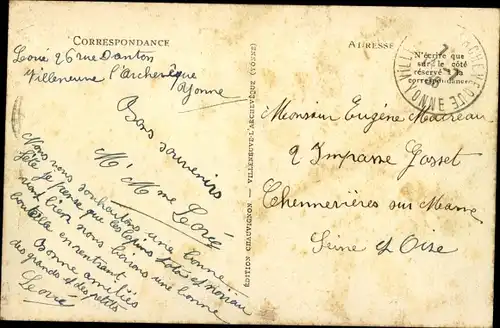 CORRESPONDANCE
Loré 26 rue Danton
Villeneuve l'Archevêque
Yonne
Bons souvenirs
M. Mme Loré
Nous vous souhaitons une bonne
fête je pense que les lapins Toto et
vont bien nous boirons une bonne
bouteille en rentrant
Bonne amitiés
des grands et des petits
Loré
ÉDITION CHAUVIGNON - VILLENEUVE-L'ARCHEVÊQUE (YONNE)
ADRESSE
N'écrire que
sur le côté
réservé à la
correspondance
YONNE
Monsieur Eugène
2 Impasse Gosset
Chennevières sur Marne
Seine et Oise